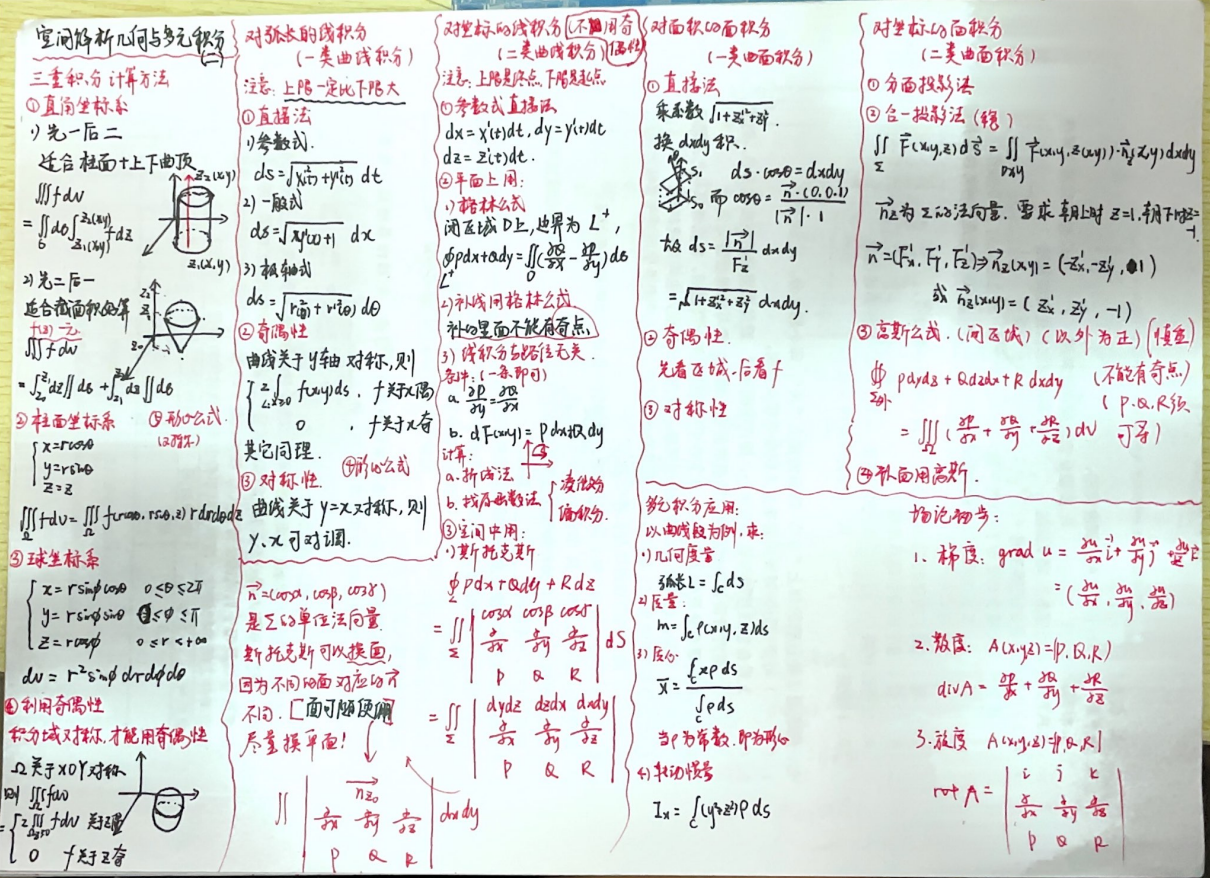 空间解析几何与多元积分(二)
三重积分计算方法
① 直角坐标系
1) 先一后二
适合柱面+上下曲顶
∭fdv
=∬dσ∫fdz
D
z₂(x,y)
z₁(x,y)
z₂(x,y)
z₁(x,y)
2) 先二后一
适合截面积好算
f(z)一元
∭fdv
=∫dz∬dσ+∫dz∬dσ
② 柱面坐标系 ⑤形心公式
x=rcosθ
y=rsinθ
z=z
∭fdv=∭f(rcosθ, rsinθ, z) rdrdθdz
Ω Ω
③ 球坐标系
x=rsinφcosθ 0≤θ≤2π
y=rsinφsinθ 0≤φ≤π
z=rcosφ 0≤r<+∞
dv=r²sinφdrdφdθ
④ 利用奇偶性
积分域对称,才能用奇偶性
Ω关于XOY对称
则∭fdv
={2∭fdv 关于z偶
Ωz≥0
0 f关于z奇
对弧长的线积分
(一类曲线积分)
注意: 上限一定比下限大
① 直接法
1) 参数式.
ds=√x'²(t)+y'²(t) dt
2) 一般式
ds=√y'²(x)+1 dx
3) 极轴式
ds=√r²(θ)+r'²(θ) dθ
② 奇偶性
曲线关于y轴对称,则
2∫f(x,y)ds, f关于x偶
L x≥0
0 , f关于x奇
其它同理.
③ 对称性. ④形心公式
曲线关于y=x对称,则
y、x可对调.
n=(cosα, cosβ, cosγ)
是Σ的单位法向量.
斯托克斯可以换面,
因为不同的面对应的n
不同.[面可随便用
尽量换平面!
∬ | n | dxdy
∂/∂x ∂/∂y ∂/∂z
P Q R
对坐标的线积分 (不用奇偶性)
(二类曲线积分)
注意: 上限是终点,下限是起点
① 参数式直接法
dx=x'(t)dt, dy=y'(t)dt
dz=z'(t)dt.
② 平面上用:
1) 格林公式
闭区域D上,边界为L⁺,
∮Pdx+Qdy=∬(∂Q/∂x-∂P/∂y)dσ
L⁺ D
2) 补线用格林公式
补的里面不能有奇点,
3) 线积分与路径无关.
条件:(一条即可)
a. ∂P/∂y=∂Q/∂x
b. dF(x,y)=Pdx+Qdy
计算:
a. 折线法
b. 找原函数法 {凑微分
偏积分.
③ 空间中用:
1) 斯托克斯
∮Pdx+Qdy+Rdz
L
=∬ | cosα cosβ cosγ | dS
Σ ∂/∂x ∂/∂y ∂/∂z
P Q R
=∬ | dydz dzdx dxdy |
Σ ∂/∂x ∂/∂y ∂/∂z
P Q R
对面积的面积分
(一类曲面积分)
① 直接法
乘系数√1+z'x²+z'y².
换dxdy积.
ds·cosθ=dxdy
而cosθ=n·(0,0,1)/|n|·1
故 ds=|n|/F'z dxdy
=√1+z'x²+z'y² dxdy.
② 奇偶性.
先看区域,后看f
③ 对称性
多元积分应用:
以曲线段为例,求:
1) 几何度量
弧长L=∫c ds
2) 质量:
m=∫c ρ(x,y,z)ds
3) 质心
x̄=∫c xρds/∫c ρds
当ρ为常数.即为形心
4) 转动惯量
Ix=∫c(y²+z²)ρds
对坐标的面积分
(二类曲面积分)
① 分面投影法
② 合一投影法
∬F(x,y,z)dS=∬F(x,y,z(x,y))·nz(x,y)dxdy
Σ Dxy
nz为Σ的法向量. 要求朝上时z=1,朝下时z=-1.
n=(F'x, F'y, F'z)⇒nz(x,y)=(-z'x, -z'y, 1)
或nz(x,y)=(z'x, z'y, -1)
③ 高斯公式.(闭区域)(以外为正)(慎查)
∯Pdydz+Qdzdx+Rdxdy (不能有奇点)
Σ外 (P.Q.R须
=∭(∂P/∂x+∂Q/∂y+∂R/∂z)dv 可导)
Ω
④ 补面用高斯.
场论初步:
1. 梯度: grad u=∂u/∂x i+∂u/∂y j+∂u/∂z k
=(∂u/∂x, ∂u/∂y, ∂u/∂z)
2. 散度: A(x,y,z)=(P,Q,R)
divA=∂P/∂x+∂Q/∂y+∂R/∂z
3. 旋度 A(x,y,z)=(P,Q,R)
rotA= | i j k |
∂/∂x ∂/∂y ∂/∂z
P Q R